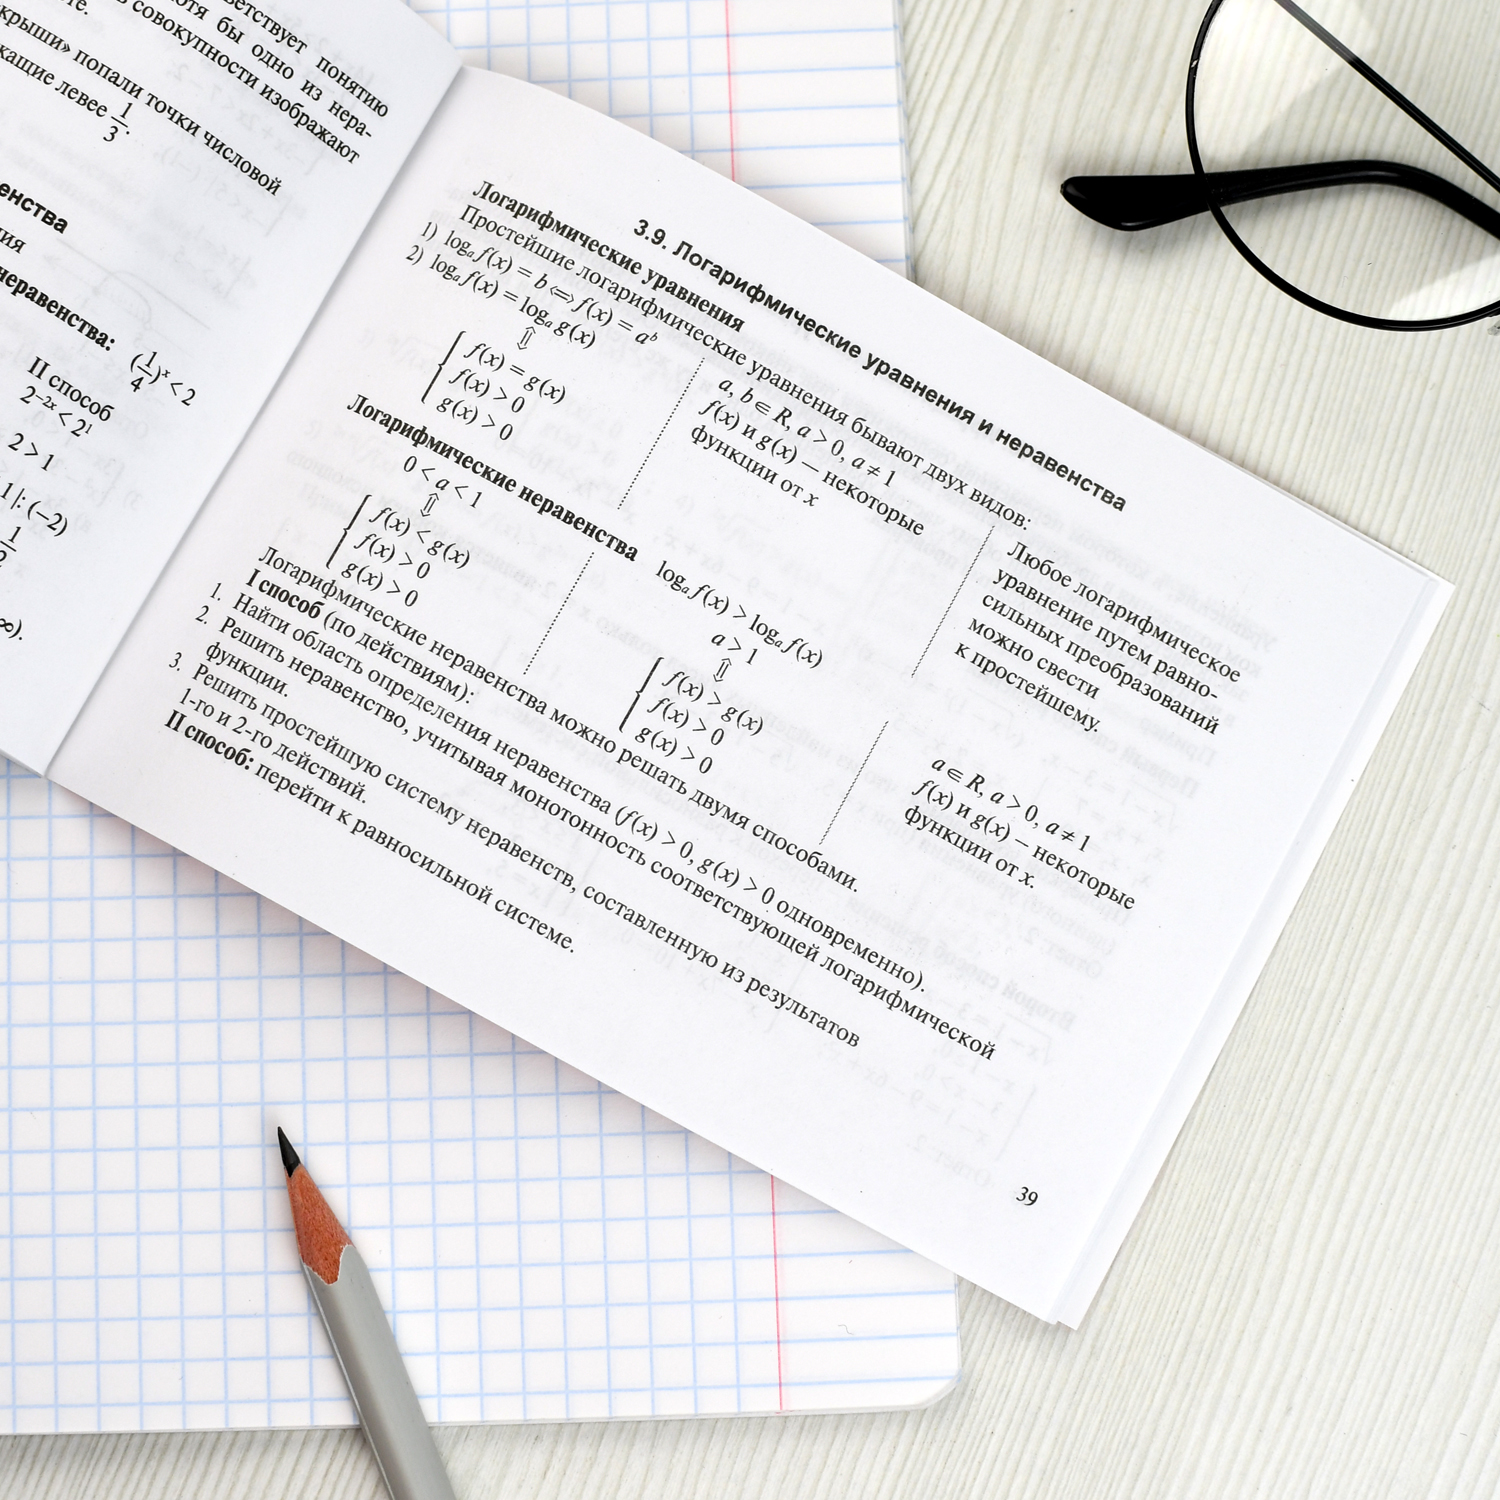 тветствует понятию
хотя бы одно из нера-
совокупности изображают
крыши» попали точки числовой
жащие левее 1/3.
енства
ния
неравенства: (1/4)ˣ < 2
II способ
2⁻²ˣ < 2¹
2 > 1
1 |: (−2)
1/2
∞).
3.9. Логарифмические уравнения и неравенства
Логарифмические уравнения
Простейшие логарифмические уравнения бывают двух видов:
1) logₐ f(x) = b ⇔ f(x) = aᵇ
2) logₐ f(x) = logₐ g(x)
⇕
f(x) = g(x)
f(x) > 0
g(x) > 0
a, b ∈ R, a > 0, a ≠ 1
f(x) и g(x) – некоторые
функции от x
Любое логарифмическое
уравнение путем равно-
сильных преобразований
можно свести
к простейшему.
Логарифмические неравенства
logₐ f(x) > logₐ f(x)
0 < a < 1
⇕
f(x) < g(x)
f(x) > 0
g(x) > 0
a > 1
⇕
f(x) > g(x)
f(x) > 0
g(x) > 0
a ∈ R, a > 0, a ≠ 1
f(x) и g(x) – некоторые
функции от x.
Логарифмические неравенства можно решать двумя способами.
I способ (по действиям):
1. Найти область определения неравенства (f(x) > 0, g(x) > 0 одновременно).
2. Решить неравенство, учитывая монотонность соответствующей логарифмической
функции.
3. Решить простейшую систему неравенств, составленную из результатов
1-го и 2-го действий.
II способ: перейти к равносильной системе.
39